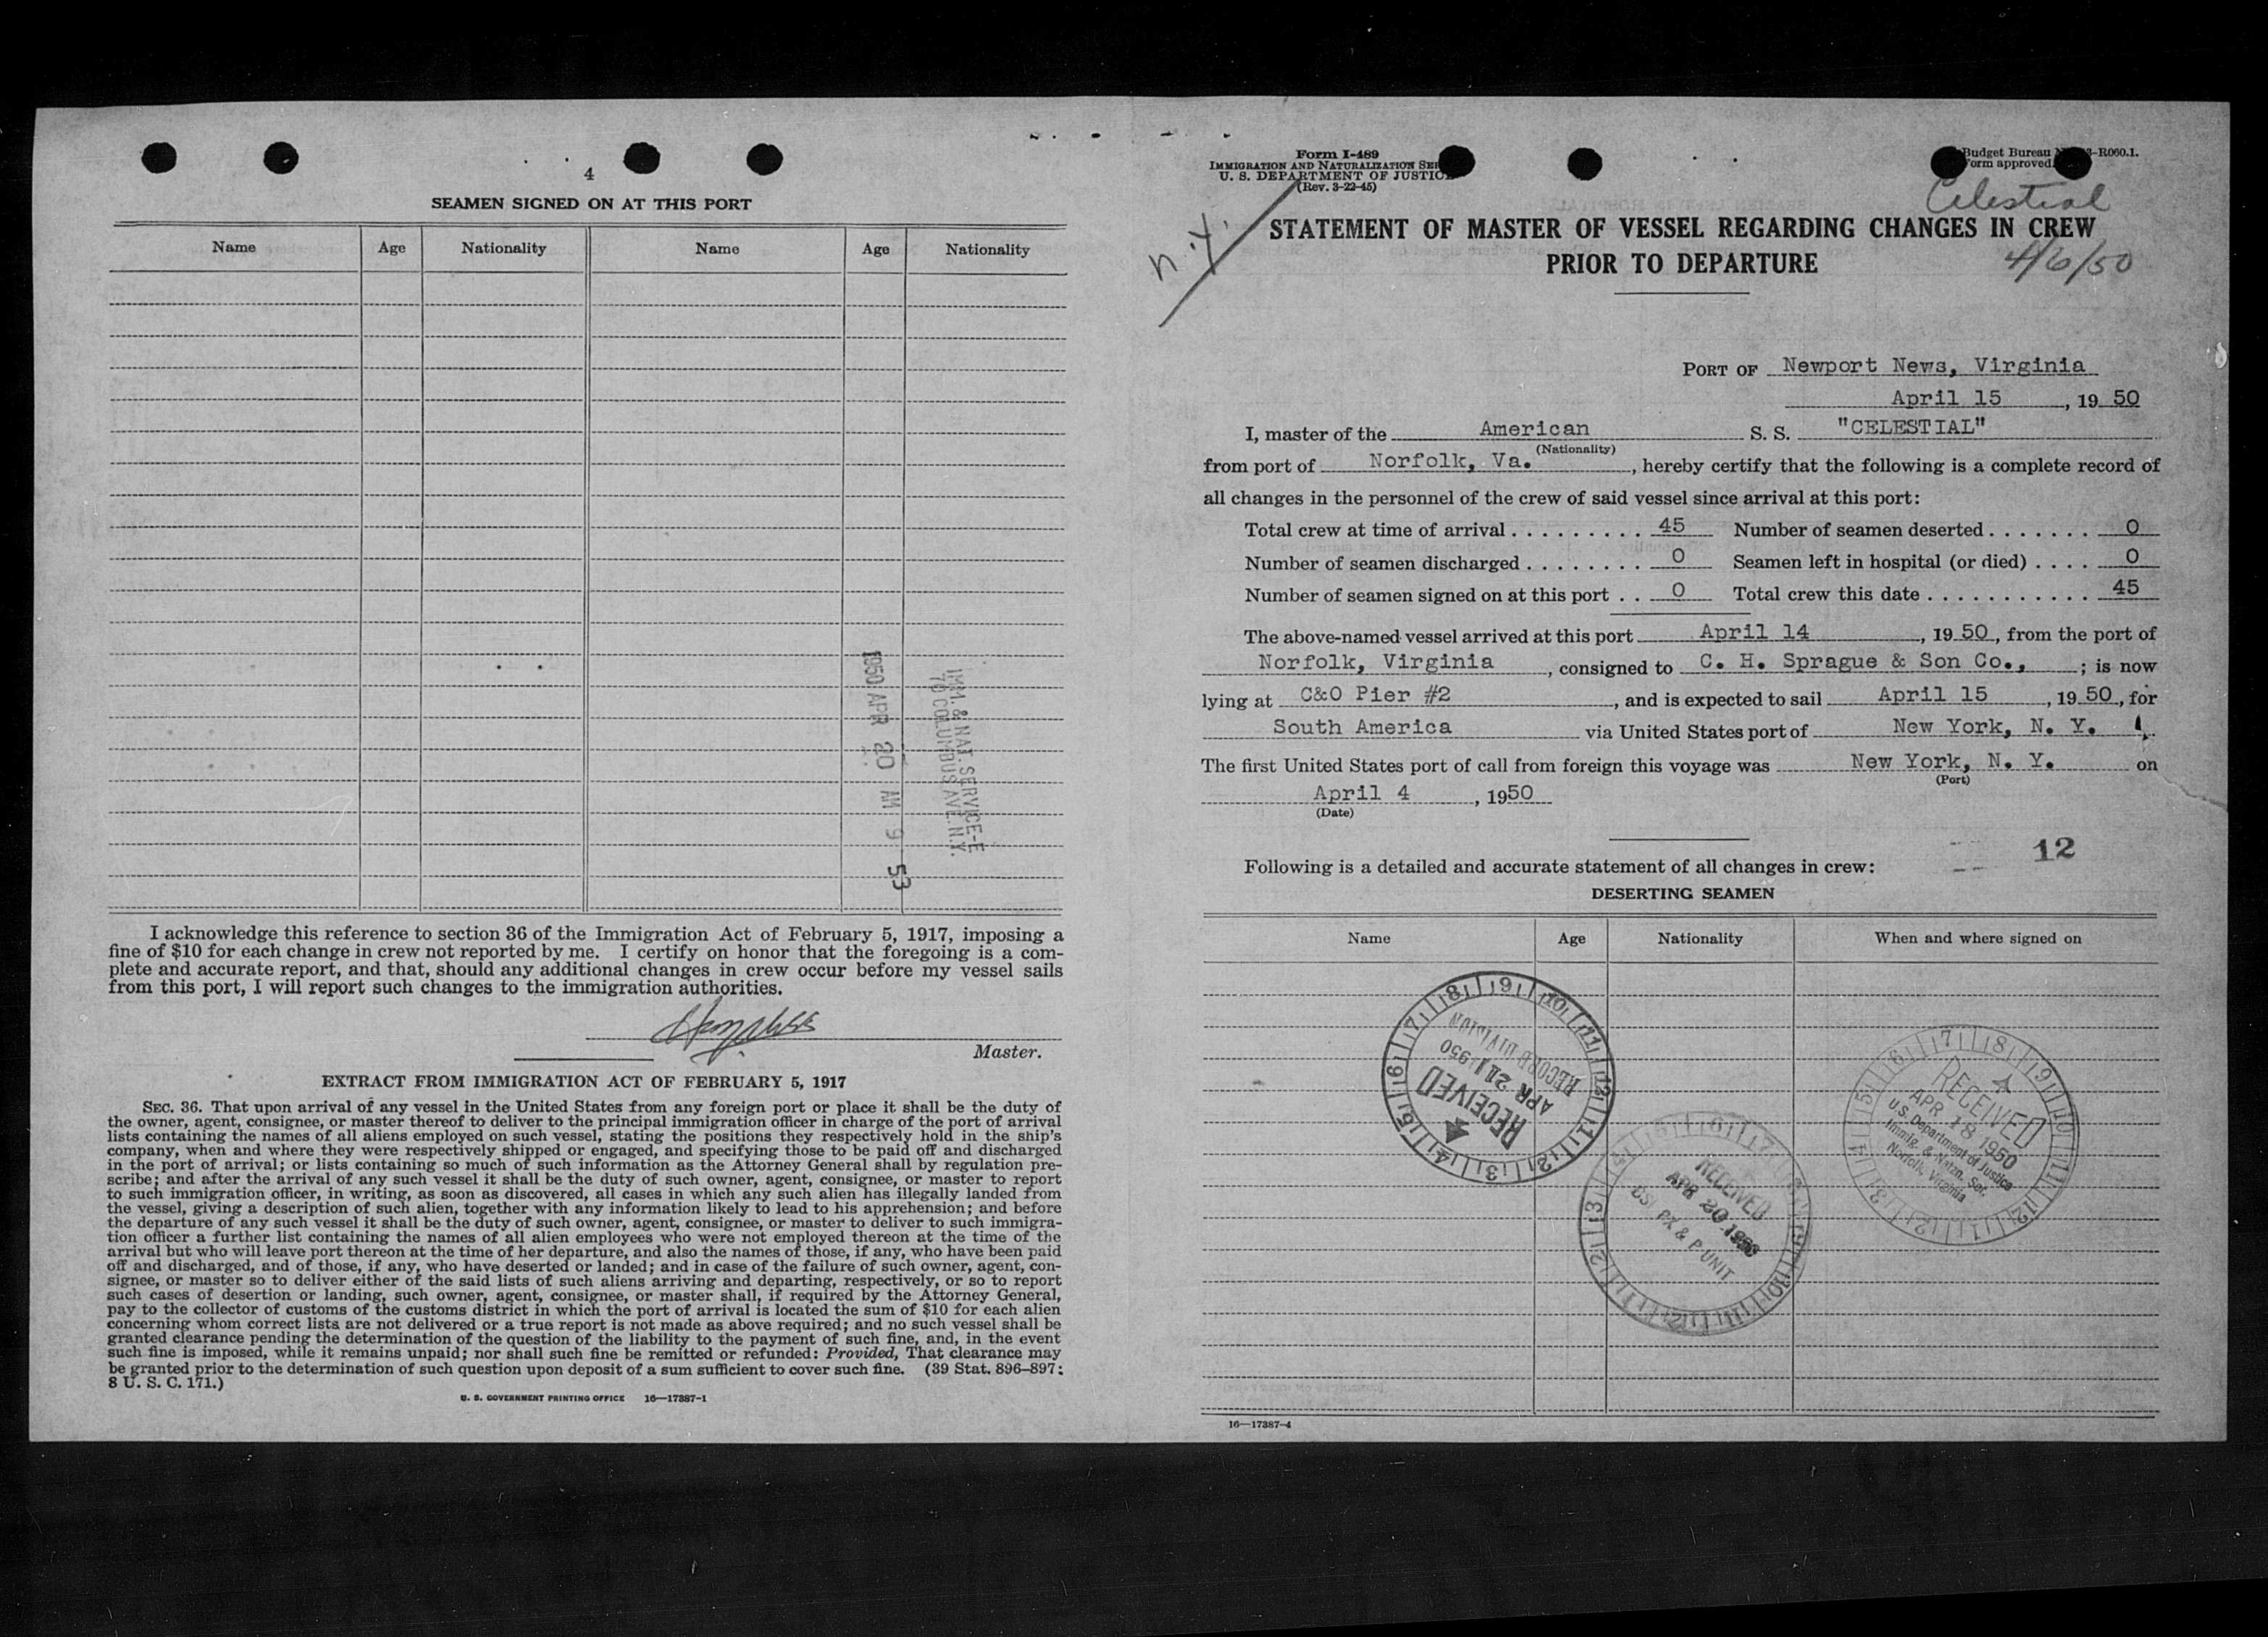 4
SEAMEN SIGNED ON AT THIS PORT
Name Age Nationality Name Age Nationality
1950 APR 20 AM 9 53
IMM. & NAT. SERVICE-E
70 COLUMBUS AVE. N.Y.
I acknowledge this reference to section 36 of the Immigration Act of February 5, 1917, imposing a
fine of $10 for each change in crew not reported by me. I certify on honor that the foregoing is a com-
plete and accurate report, and that, should any additional changes in crew occur before my vessel sails
from this port, I will report such changes to the immigration authorities.
Master.
EXTRACT FROM IMMIGRATION ACT OF FEBRUARY 5, 1917
SEC. 36. That upon arrival of any vessel in the United States from any foreign port or place it shall be the duty of
the owner, agent, consignee, or master thereof to deliver to the principal immigration officer in charge of the port of arrival
lists containing the names of all aliens employed on such vessel, stating the positions they respectively hold in the ship's
company, when and where they were respectively shipped or engaged, and specifying those to be paid off and discharged
in the port of arrival; or lists containing so much of such information as the Attorney General shall by regulation pre-
scribe; and after the arrival of any such vessel it shall be the duty of such owner, agent, consignee, or master to report
to such immigration officer, in writing, as soon as discovered, all cases in which any such alien has illegally landed from
the vessel, giving a description of such alien, together with any information likely to lead to his apprehension; and before
the departure of any such vessel it shall be the duty of such owner, agent, consignee, or master to deliver to such immigra-
tion officer a further list containing the names of all alien employees who were not employed thereon at the time of the
arrival but who will leave port thereon at the time of her departure, and also the names of those, if any, who have been paid
off and discharged, and of those, if any, who have deserted or landed; and in case of the failure of such owner, agent, con-
signee, or master so to deliver either of the said lists of such aliens arriving and departing, respectively, or so to report
such cases of desertion or landing, such owner, agent, consignee, or master shall, if required by the Attorney General,
pay to the collector of customs of the customs district in which the port of arrival is located the sum of $10 for each alien
concerning whom correct lists are not delivered or a true report is not made as above required; and no such vessel shall be
granted clearance pending the determination of the question of the liability to the payment of such fine, and, in the event
such fine is imposed, while it remains unpaid; nor shall such fine be remitted or refunded: Provided, That clearance may
be granted prior to the determination of such question upon deposit of a sum sufficient to cover such fine. (39 Stat. 896–897;
8 U. S. C. 171.)
U. S. GOVERNMENT PRINTING OFFICE 16—17387-1
Form I-489
IMMIGRATION AND NATURALIZATION
U. S. DEPARTMENT OF JUSTICE
(Rev. 3-22-45)
Budget Bureau -R060.1.
Form approved
Celestial
n.y.
STATEMENT OF MASTER OF VESSEL REGARDING CHANGES IN CREW
PRIOR TO DEPARTURE
4/6/50
PORT OF Newport News, Virginia
April 15, 1950
I, master of the American S. S. "CELESTIAL"
(Nationality)
from port of Norfolk, Va., hereby certify that the following is a complete record of
all changes in the personnel of the crew of said vessel since arrival at this port:
Total crew at time of arrival . . . . . . . . . 45 Number of seamen deserted . . . . . . . 0
Number of seamen discharged . . . . . . . . 0 Seamen left in hospital (or died) . . . . 0
Number of seamen signed on at this port . . 0 Total crew this date . . . . . . . . . . . 45
The above-named vessel arrived at this port April 14, 1950, from the port of
Norfolk, Virginia, consigned to C. H. Sprague & Son Co.,; is now
lying at C&O Pier #2, and is expected to sail April 15, 1950, for
South America via United States port of New York, N. Y.
The first United States port of call from foreign this voyage was New York, N. Y. on
(Port)
April 4, 1950
(Date)
12
Following is a detailed and accurate statement of all changes in crew:
DESERTING SEAMEN
Name Age Nationality When and where signed on
RECEIVED
APR 21 1950
RECORD DIVISION
RECEIVED
APR 20 1950
DSI PX & P UNIT
RECEIVED
APR 18 1950
U.S. Department of Justice
Immig. & Natzn. Ser.
Norfolk, Virginia
16—17387-4